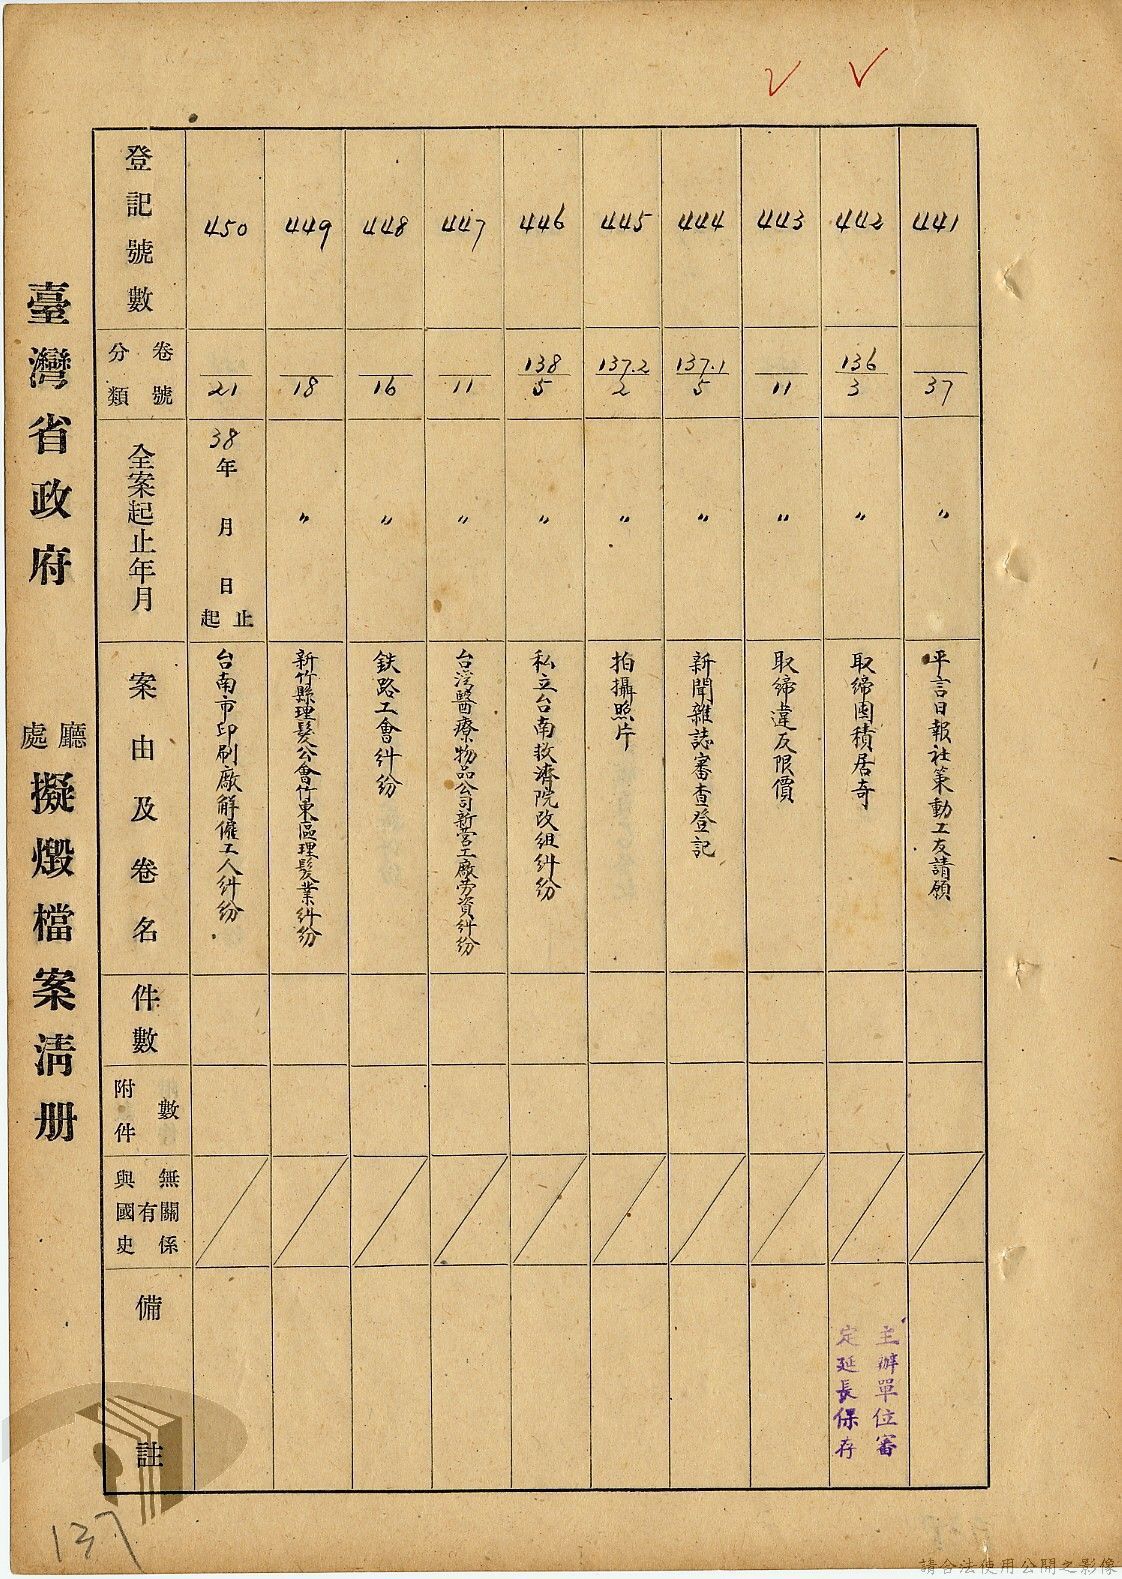 臺灣省政府
廳
處
擬燬檔案清册
登記號數
450
449
448
447
446
445
444
443
442
441
卷號
分類
21
18
16
11
138
5
137.2
2
137.1
5
11
136
3
37
全案起止年月
38年 月 日
止
起
〃
〃
〃
〃
〃
〃
〃
〃
〃
案由及卷名
台南市印刷廠解僱工人糾纷
新竹縣理髮公會竹東區理髮業糾纷
鉄路工會糾纷
台湾醫療物品公司新营工廠劳資糾纷
私立台南救濟院改組糾纷
拍攝照片
新聞雜誌審查登記
取締違反限價
取締囤積居奇
平言日報社策動工友請願
件數
附件數
與國史
有
無關係
備註
主辦單位審
定延長保存
137
請合法使用公開之影像